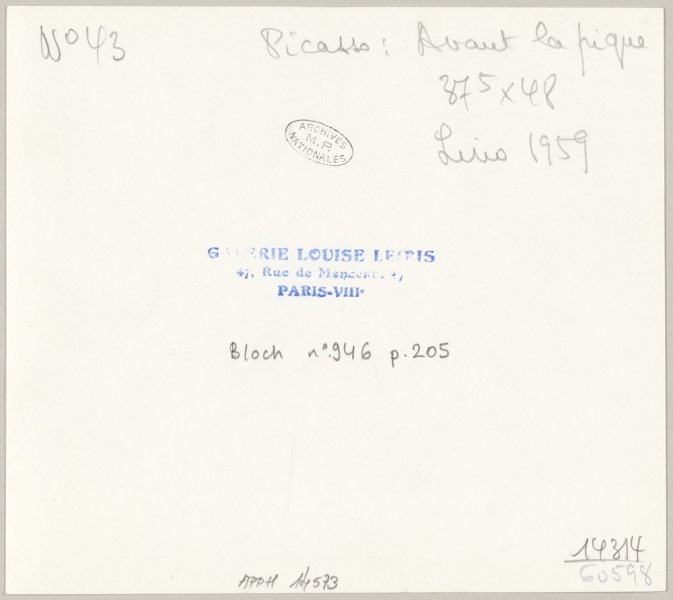 N° 43
Picasso: Avant la pique
37⁵ x 48
Lino 1959
ARCHIVES
M. P.
NATIONALES
GALERIE LOUISE LEIRIS
47, Rue de Monceau, 47
PARIS-VIIIᵉ
Bloch n°.946 p.205
14314
60598
APPH 14573